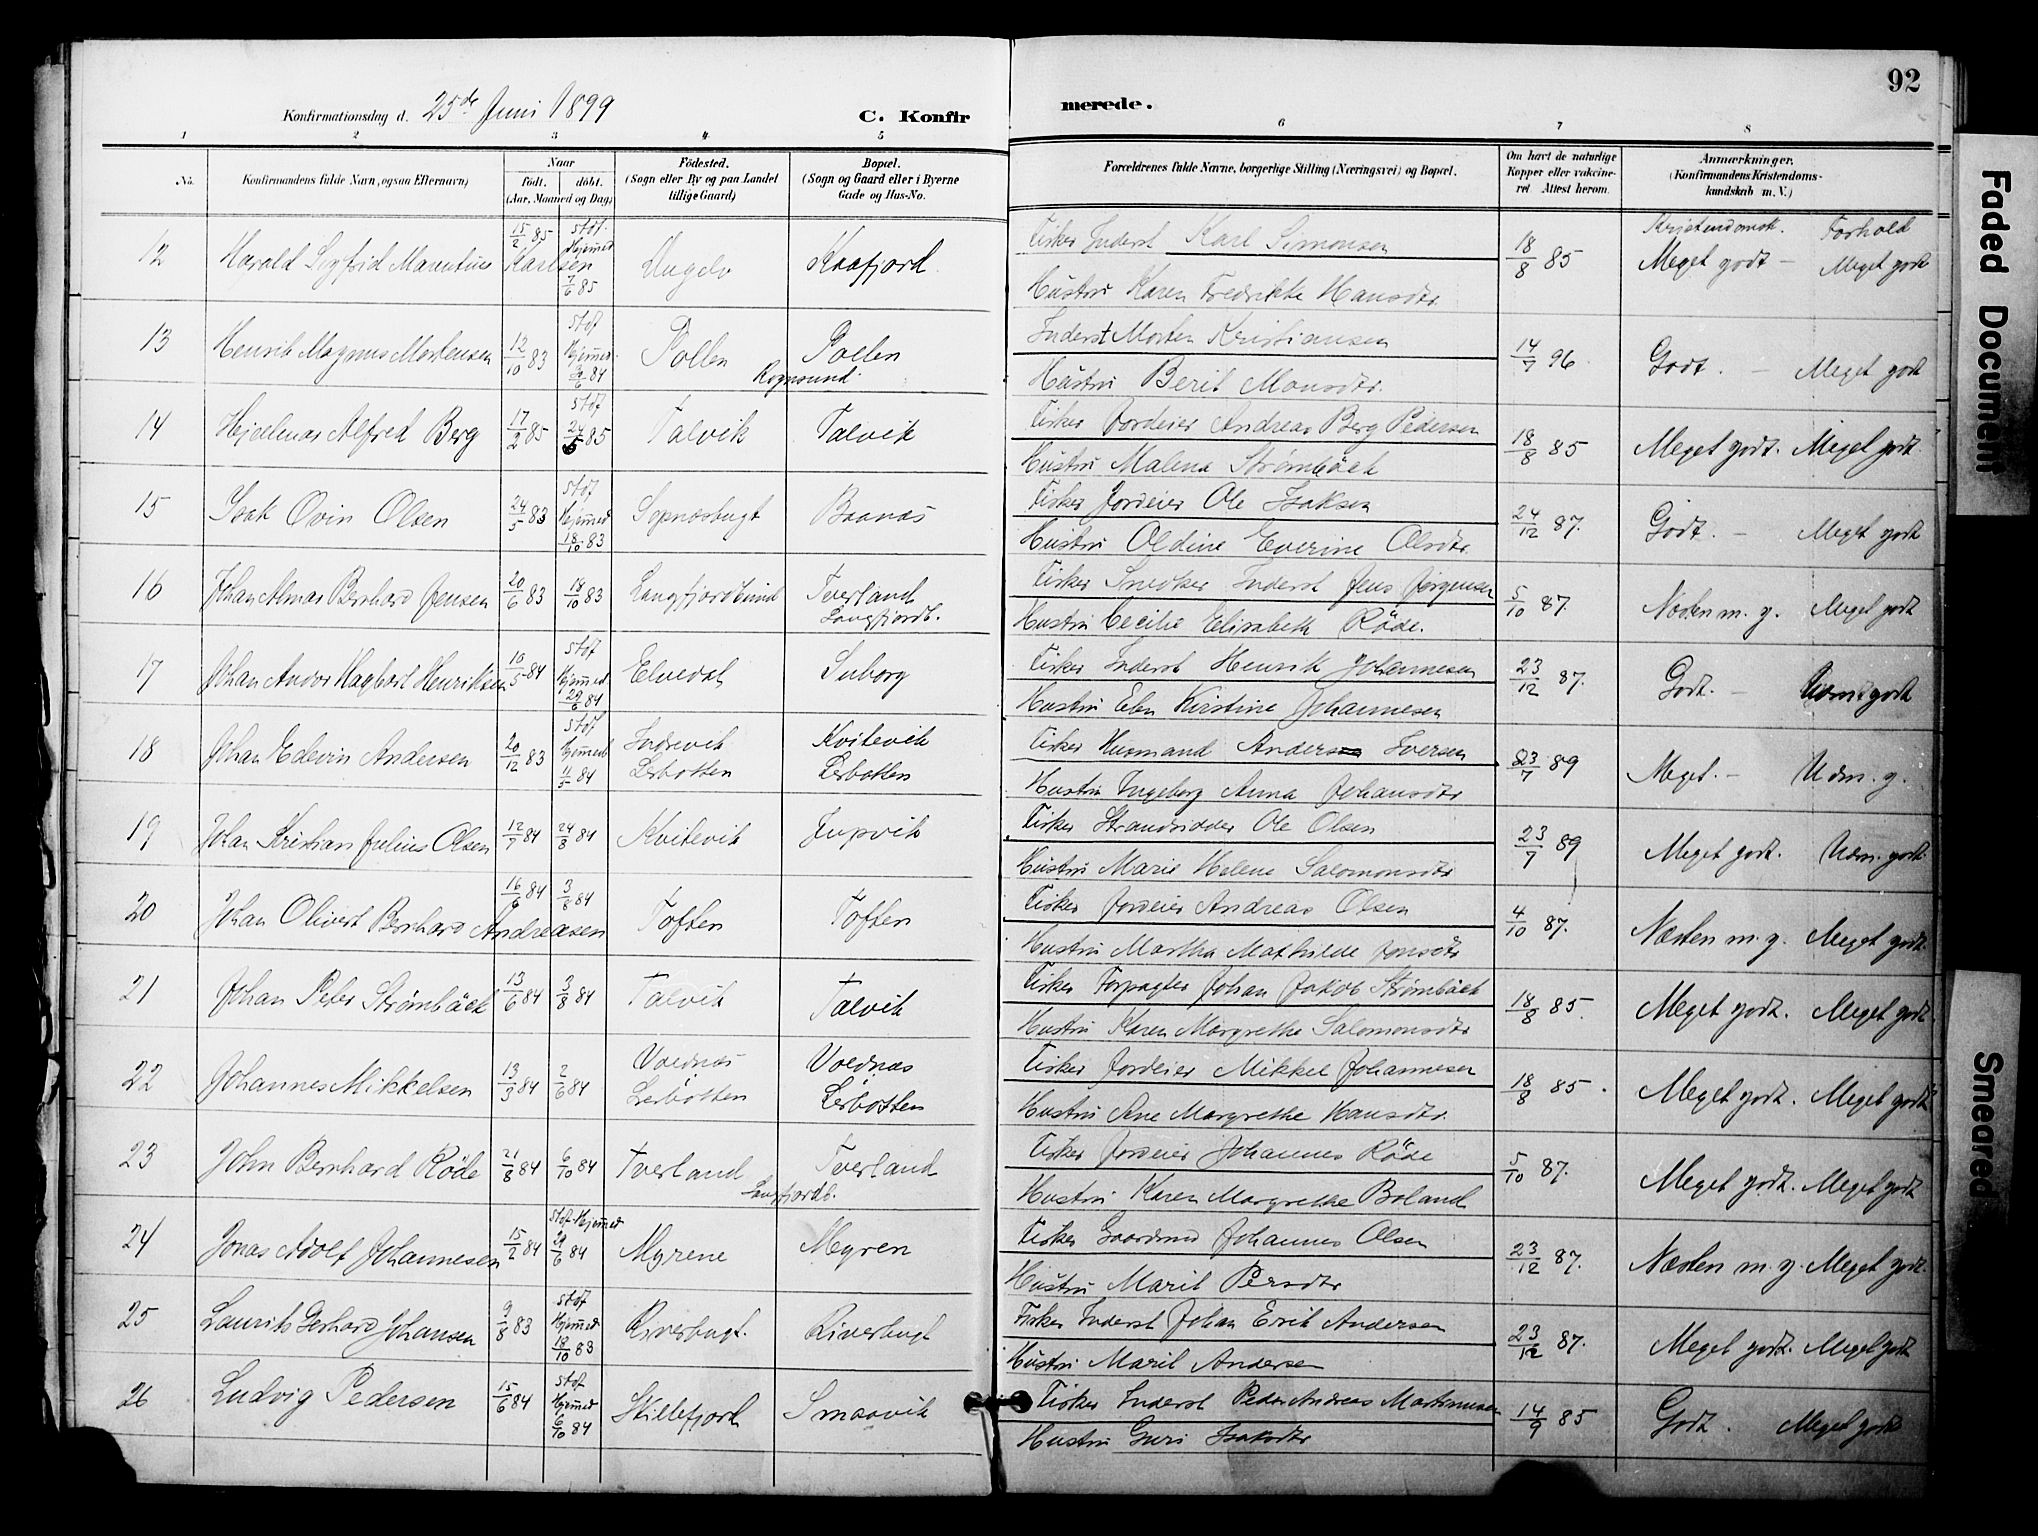 92
Konfirmationsdag d. 25de Juni 1899
C. Konfirmerede.
1 2 3 4 5 6 7 8
No.
Konfirmandens fulde Navn, ogsaa Efternavn)
Naar
Födt. döbt.
(Aar, Maaned og Dag)
Födested.
(Sogn eller By og paa Landet
tillige Gaard)
Bopæl.
(Sogn og Gaard eller i Byerne
Gade og Hus-No.
Forældrenes fulde Navne, borgerlige Stilling (Næringsvei) og Bopæl.
Om havt de naturlige
Kopper eller vakcine-
ret Attest herom.
Anmærkninger.
(Konfirmandens Kristendoms-
kundskab m. V.)
Kristendomsk. Forhold
12 Harald Sigfrid Marentius Karlsen 15/2 85 Stof. Hjemmed 7/6 85 Kaafjord Fisker Inderst Karl Simonsen 18/8 85 Meget godt - Meget godt
Hustru Karen Fredrikke Hansdtr.
13 Henrik Magnus Mortensen 12/10 83 Stof Hjemmed. 84 Pollen Pollen Rognsund Inderst Morten Kristiansen 14/7 96 Godt. - Meget godt
Hustru Berit Monsdtr.
14 Hjalmar Alfred Berg 17/2 85 Stof 24/5 85 Talvik Talvik Fisker Jordeier Andreas Berg Pedersen 18/8 85 Meget godt. Meget godt.
Hustru Malena Strømbäck
15 Isak Ovin Olsen 24/5 83 Stof Hjemmed 18/10 83 Sopnæsbugt Fisker Jordeier Ole Isaksen 24/12 87. Godt. - Meget godt
Hustru Oldine Everine Olsdtr.
16 Johan Almar Bernhard Jensen 20/6 83 18/10 83 Langfjordbund Tverland Langfjordb. Fisker Snedker Inderst Jens Jørgensen 5/10 87. Næsten m. g. Meget godt
Hustru Cecilie Elisabeth Röde.
17 Johan Andor Hagbart Henriksen 10/5 84 Stof Hjemmed 29/6 84 Elvedal Suborg Fisker Inderst Henrik Johannesen 23/12 87. Godt. - Udm. godt
Hustru Elen Kirstine Johannesen
18 Johan Edevin Andersen 20/12 83 Stof Hjemmed 11/5 84 Indrevik Lerbotten Kvitevik Lerbotten Fisker Husmand Anders Iversen 23/7 89 Meget. - Udm. g.
Hustru Ingeborg Anna Johansdtr
19 Johan Kristian Julius Olsen 12/7 84 24/8 84 Kvitevik Jupvik Fisker Strandsidder Ole Olsen 23/7 89 Meget godt. Udm. godt.
Hustru Marie Helene Salomonsdtr
20 Johan Olivert Bernhard Andreasen 16/6 84 3/8 84 Toften Toften Fisker Jordeier Andreas Olsen 4/10 87. Næsten m. g. Meget godt.
Hustru Martha Mathilde Jensdtr
21 Johan Peter Strømbäck 13/6 84 3/8 84 Talvik Talvik Fisker Forpagter Johan Jakob Strømbäck 18/8 85. Meget godt. Meget godt.
Hustru Karen Margrethe Salomonsdtr
22 Johannes Mikkelsen 13/3 84 2/6 84 Voldnæs Lerbotten Voldnæs Lerbotten Fisker Jordeier Mikkel Johannesen 18/8 85. Meget godt. Meget godt
Hustru Ane Margrethe Hansdtr.
23 John Bernhard Röde 21/8 84 6/10 84 Tverland Langfjordb. Tverland Fisker Jordeier Johannes Röde 5/10 87. Meget godt. Meget godt
Hustru Karen Margrethe Boland
24 Jonas Adolf Johannesen 15/2 84 Stof Hjemmed 29/6 84 Myrene Myren Fisker Gaardmd Johannes Olsen 23/12 87. Næsten m. g. Meget godt.
Hustru Marit Persdtr
25 Laurits Gerhard Johansen 9/8 83 Stof Hjemmed 18/10 83 Riverbugt. Riverbugt Fisker Inderst Johan Erik Andersen 23/12 87. Meget godt. Meget godt
Hustru Marit Andersen
26 Ludvig Pedersen 15/6 84 Stof Hjemmed 6/10 84 Stillefjord Smaavik Fisker Inderst Peder Andreas Martinusen 14/9 85 Godt. Meget godt
Hustru Guri Isaksdtr
Faded Document
Smeared